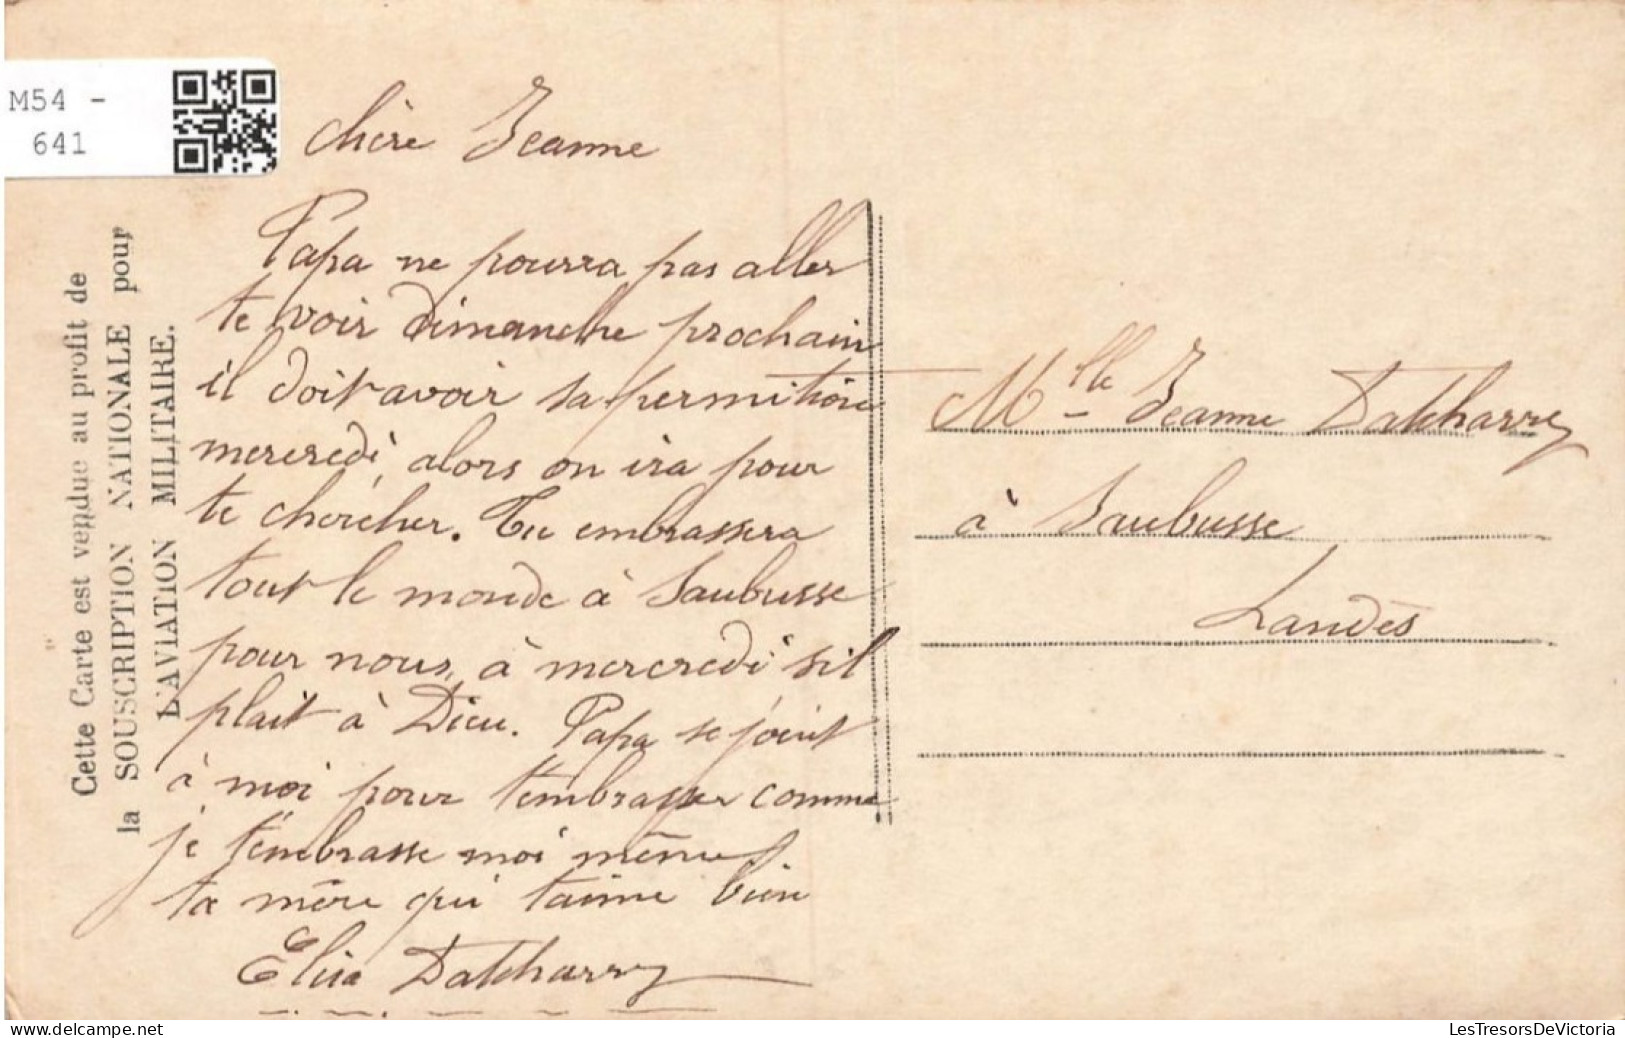 M54 -
641
Cette Carte est vendue au profit de
la SOUSCRIPTION NATIONALE pour
L'AVIATION MILITAIRE.
chère Jeanne
Papa ne pourra pas aller
te voir dimanche prochain
il doit avoir sa permition
mercredi, alors on ira pour
te chercher. Tu embrassera
tout le monde à Saubusse
pour nous, à mercredi s'il
plait à Dieu. Papa se joint
à moi pour t'embrasser comme
je t'embrasse moi même
ta mère qui t'aime bien
Elisa Datcharry
Mlle Jeanne Datcharry
à Saubusse
Landes
delcampe.net
LesTresorsDeVictoria